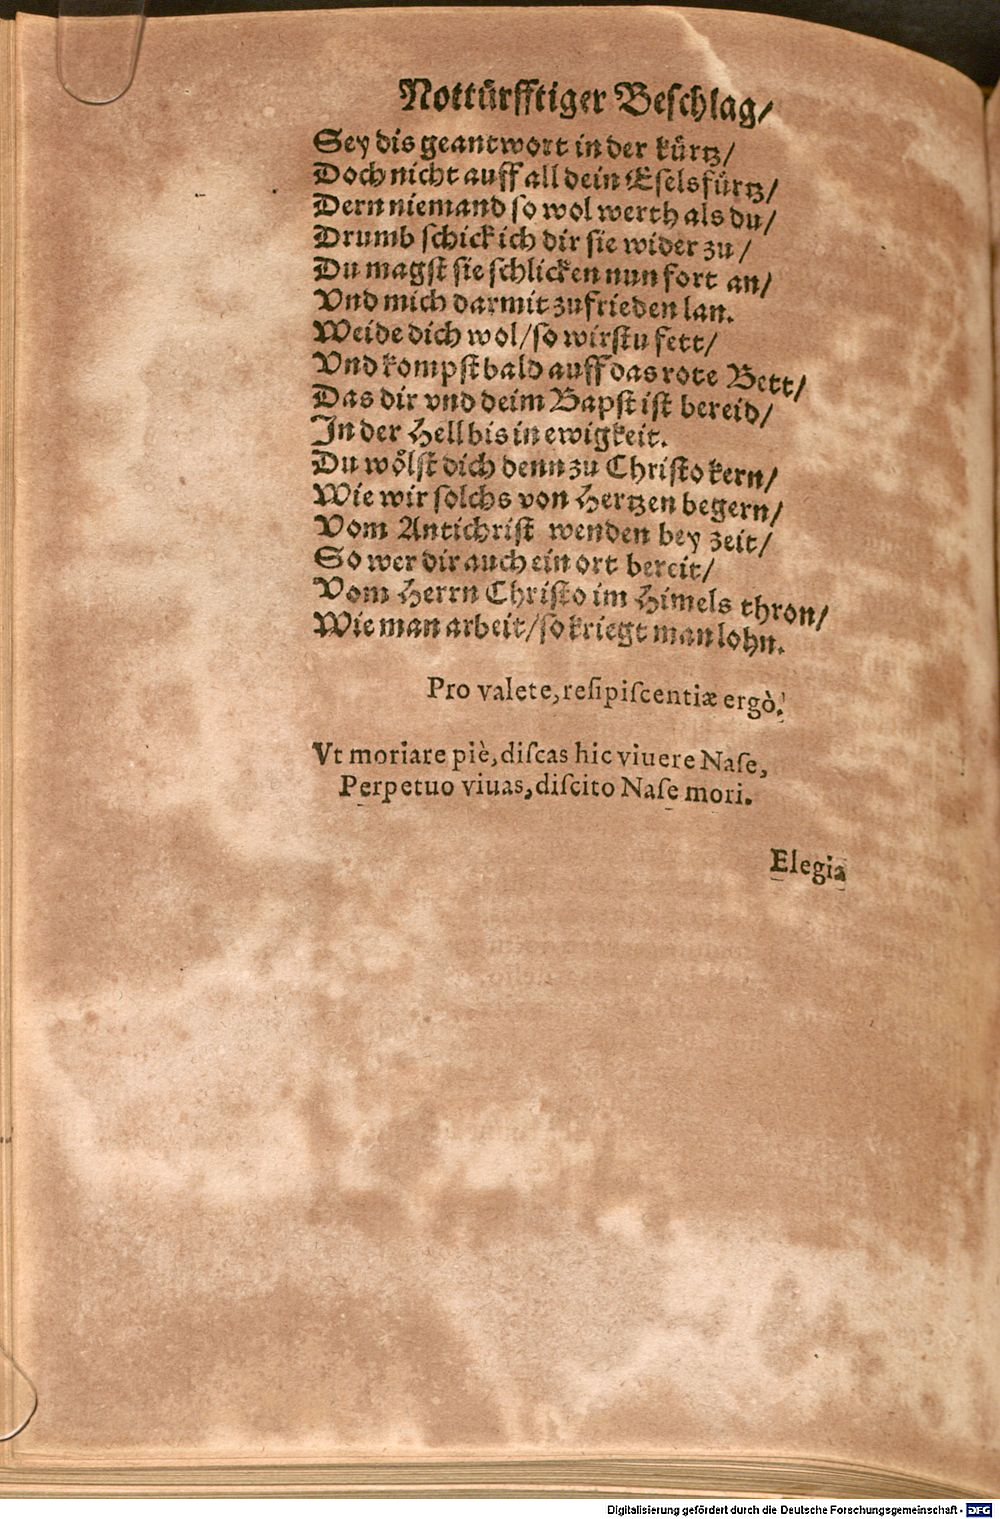 Nottürfftiger Beſchlag/
Sey dis geantwort in der kürtz/
Doch nicht auff all dein Eſelsfürtz/
Dern niemand ſo wol werth als du/
Drumb ſchick ich dir ſie wider zu/
Du magſt ſie ſchlicken nun fort an/
Vnd mich darmit zufrieden lan.
Weide dich wol/ſo wirſtu fett/
Vnd kompſt bald auff das rote Bett/
Das dir vnd deim Bapſt iſt bereid/
In der Hell bis in ewigkeit.
Du wöͤlſt dich denn zu Chriſto kern/
Wie wir ſolchs von Hertzen begern/
Vom Antichriſt wenden bey zeit/
So wer dir auch ein ort bereit/
Vom Herrn Chriſto im Himels thron/
Wie man arbeit/ſo kriegt man lohn.
Pro valete, reſipiſcentiæ ergò.
Vt moriare piè, diſcas hic viuere Naſe,
Perpetuo viuas, diſcito Naſe mori.
Elegia
Digitalisierung gefördert durch die Deutsche Forschungsgemeinschaft - DFG